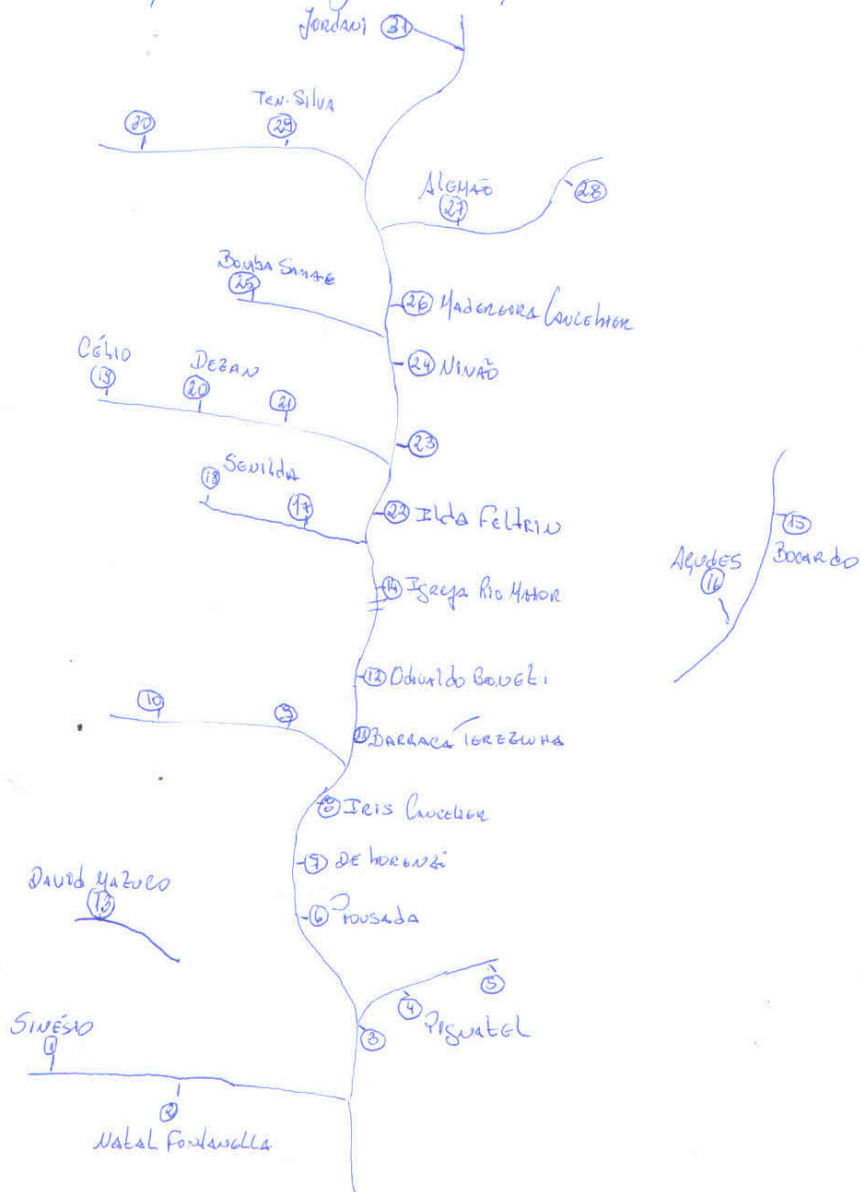 Jordani 31
Ten. Silva
30 29
Alemão
27 28
Bomba Samae
25
26 Madereira Cancelier
Célio
19
Dezan
20 21
24 Ninão
23
Senilda
18 17
22 Ilda Feltrin
15
Bocardo
Açudes
16
14 Igreja Rio Maior
12 Odivaldo Boneti
10 9
11 Barraca Terezinha
8 Iris Cancelier
7 De Lorenzi
David Mazuco
13
6 Pousada
5
4
Pignatel
3
Sinésio
1
2
Natal Fontanella